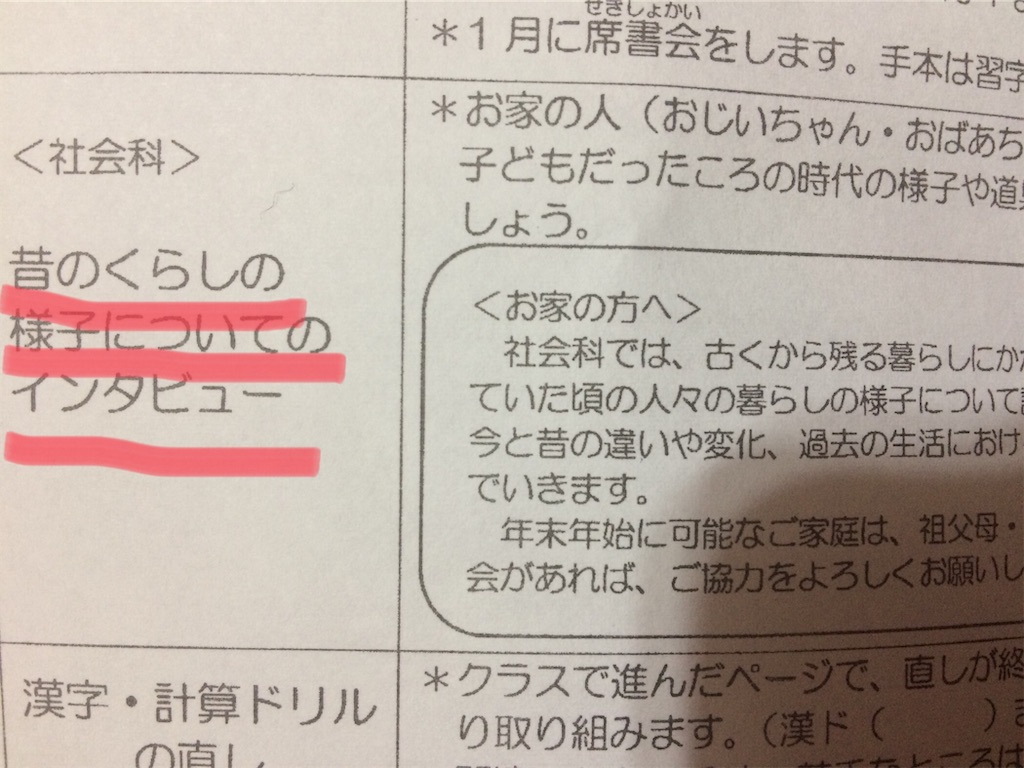 せきしょかい
＊１月に席書会をします。手本は習字
＜社会科＞
昔のくらしの
様子についての
インタビュー
＊お家の人（おじいちゃん・おばあち
子どもだったころの時代の様子や道
しょう。
＜お家の方へ＞
社会科では、古くから残る暮らしにか
ていた頃の人々の暮らしの様子について
今と昔の違いや変化、過去の生活におけ
でいきます。
年末年始に可能なご家庭は、祖父母・
会があれば、ご協力をよろしくお願いし
漢字・計算ドリル
の直し
＊クラスで進んだページで、直しが終
り取り組みます。（漢ド（　　　）